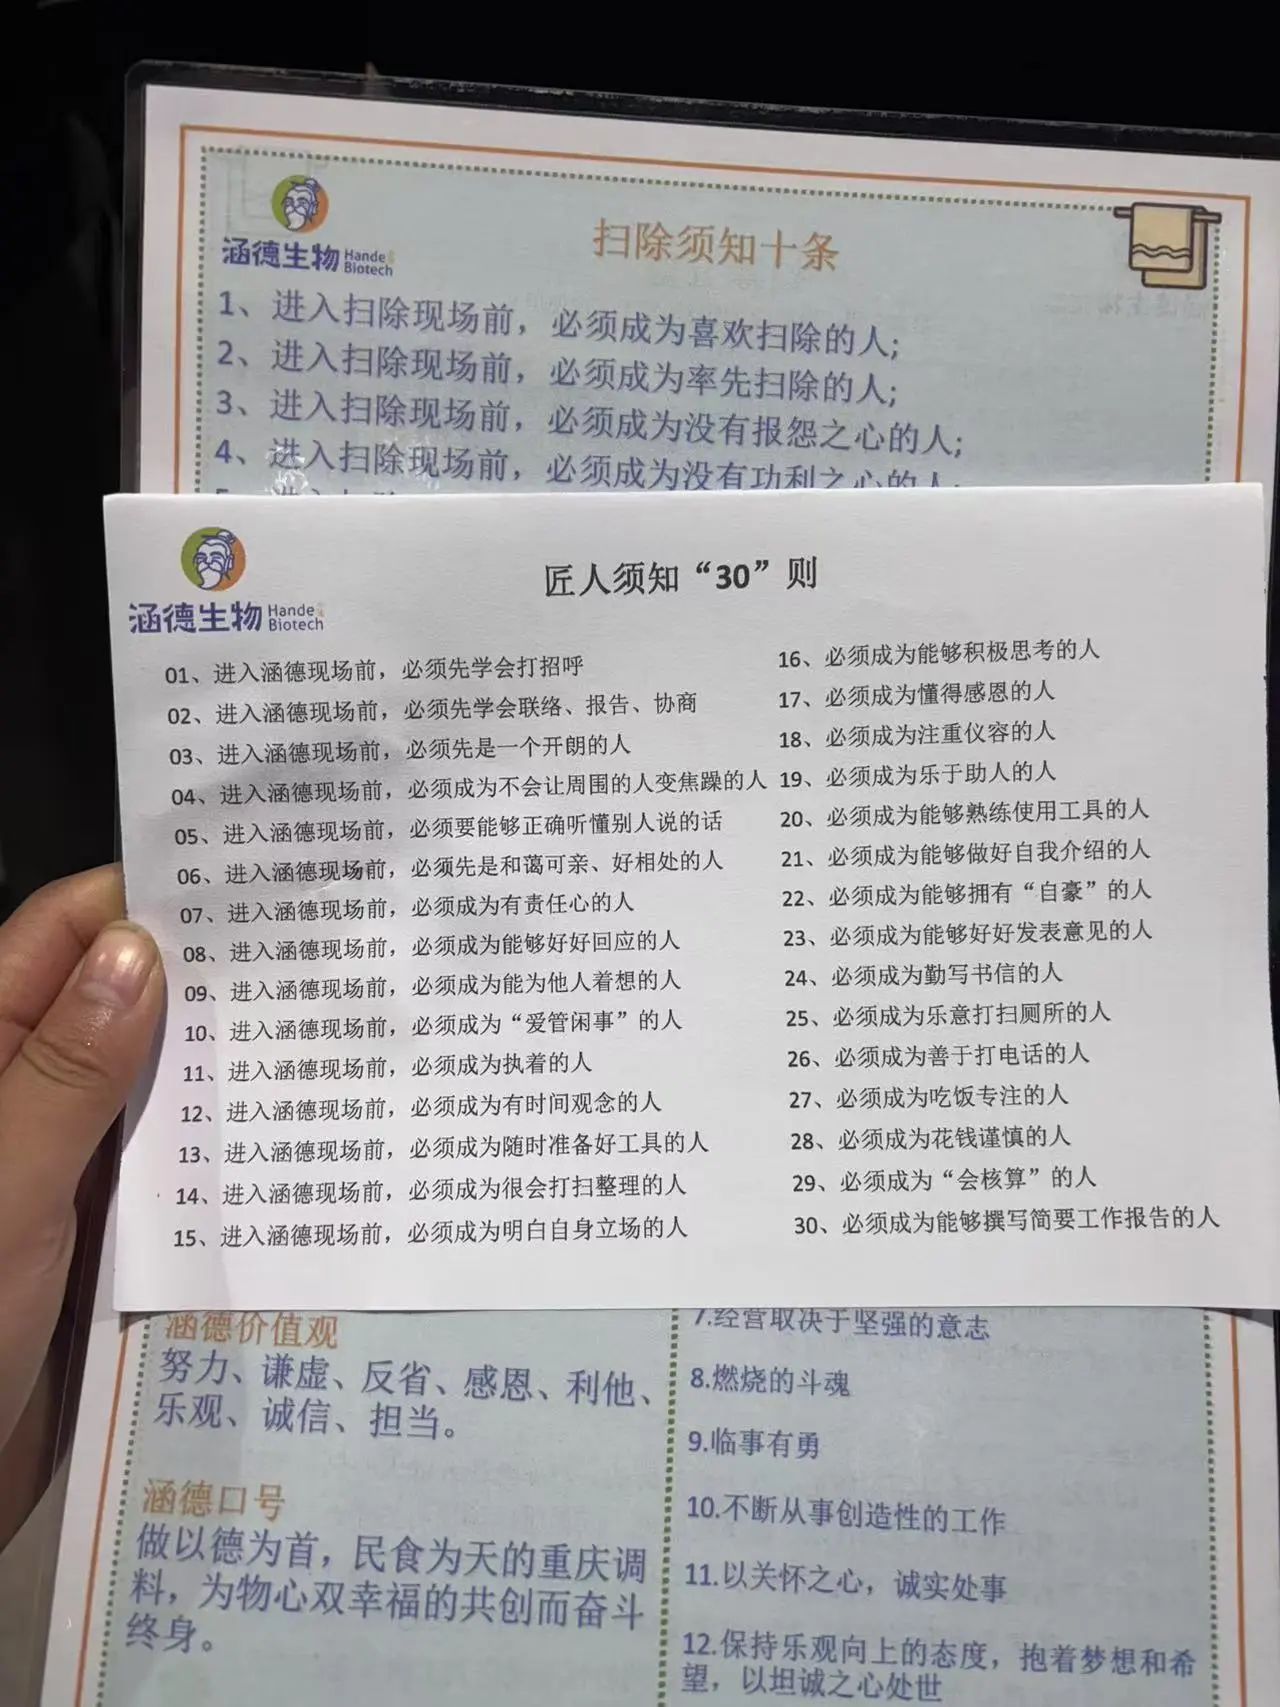 涵德生物 Hande Biotech
扫除须知十条
1、进入扫除现场前，必须成为喜欢扫除的人;
2、进入扫除现场前，必须成为率先扫除的人;
3、进入扫除现场前，必须成为没有报怨之心的人;
4、进入扫除现场前，必须成为没有功利之心的人;
涵德生物 Hande Biotech
匠人须知“30”则
01、进入涵德现场前，必须先学会打招呼
02、进入涵德现场前，必须先学会联络、报告、协商
03、进入涵德现场前，必须先是一个开朗的人
04、进入涵德现场前，必须成为不会让周围的人变焦躁的人
05、进入涵德现场前，必须要能够正确听懂别人说的话
06、进入涵德现场前，必须先是和蔼可亲、好相处的人
07、进入涵德现场前，必须成为有责任心的人
08、进入涵德现场前，必须成为能够好好回应的人
09、进入涵德现场前，必须成为能为他人着想的人
10、进入涵德现场前，必须成为“爱管闲事”的人
11、进入涵德现场前，必须成为执着的人
12、进入涵德现场前，必须成为有时间观念的人
13、进入涵德现场前，必须成为随时准备好工具的人
14、进入涵德现场前，必须成为很会打扫整理的人
15、进入涵德现场前，必须成为明白自身立场的人
16、必须成为能够积极思考的人
17、必须成为懂得感恩的人
18、必须成为注重仪容的人
19、必须成为乐于助人的人
20、必须成为能够熟练使用工具的人
21、必须成为能够做好自我介绍的人
22、必须成为能够拥有“自豪”的人
23、必须成为能够好好发表意见的人
24、必须成为勤写书信的人
25、必须成为乐意打扫厕所的人
26、必须成为善于打电话的人
27、必须成为吃饭专注的人
28、必须成为花钱谨慎的人
29、必须成为“会核算”的人
30、必须成为能够撰写简要工作报告的人
涵德价值观
努力、谦虚、反省、感恩、利他、
乐观、诚信、担当。
涵德口号
做以德为首，民食为天的重庆调
料，为物心双幸福的共创而奋斗
终身。
7.经营取决于坚强的意志
8.燃烧的斗魂
9.临事有勇
10.不断从事创造性的工作
11.以关怀之心，诚实处事
12.保持乐观向上的态度，抱着梦想和希
望，以坦诚之心处世